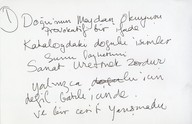 1
Doğu'nun Meydan Okuyuşu
Provokatif bir ifade
Katalogdaki doğulu isimler
Sunu
Sanat Üretmek Zordur
Yalnızca için
değil Batılı içinde
ve bir çeşit Yarışmadır